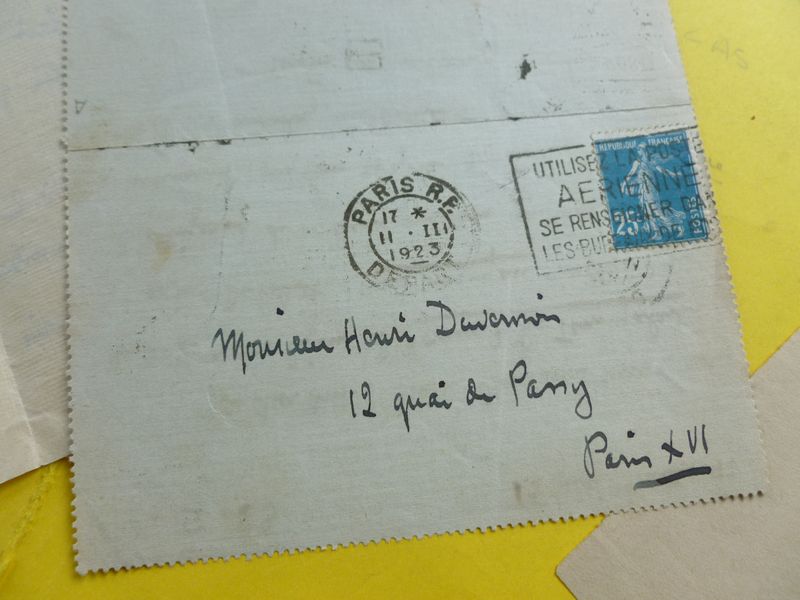 RÉPUBLIQUE FRANÇAISE
UTILISEZ LA POSTE
AERIENNE
SE RENSEIGNER DANS
LES BUR
25
POSTES
PARIS R.P.
17 *
11 · III
1923
DEPART
Monsieur Henri Duvernois
12 quai de Passy
Paris XVI